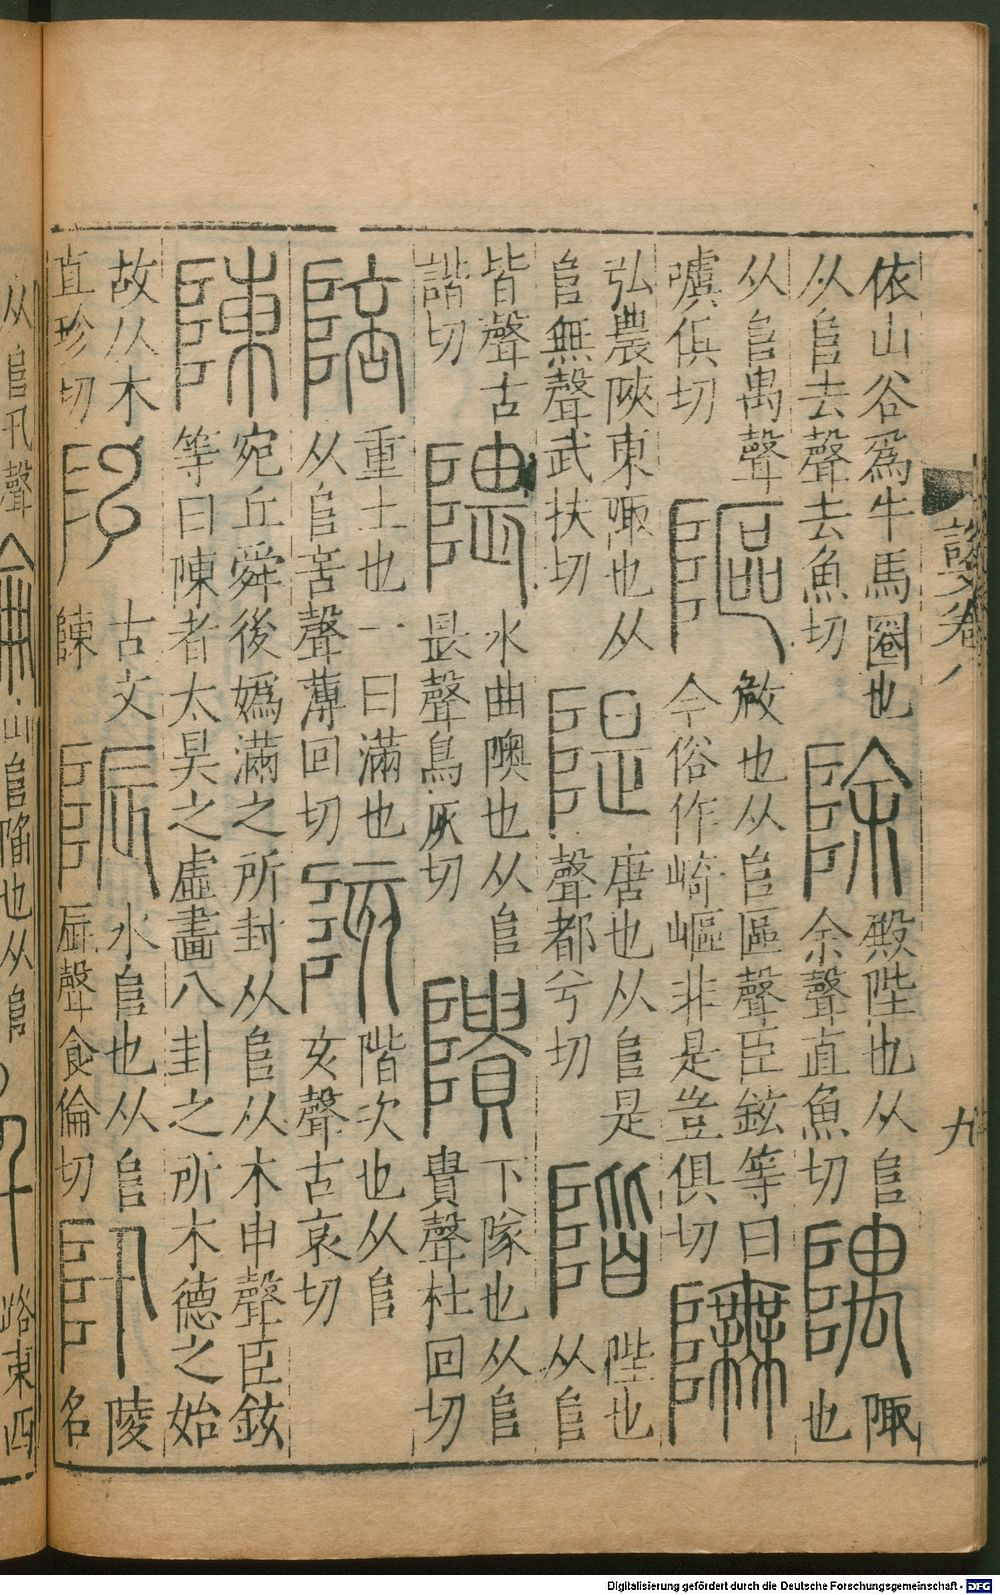 說文卷八
九
依山谷爲牛馬圈也
从𨸏去聲去魚切
除
殿陛也从𨸏
余聲直魚切
隅
陬
也
从𨸏禺聲
噳俱切
䧢
敧也从𨸏區聲臣鉉等曰
今俗作崎嶇非是豈俱切
𨼊
弘農陜東陬也从
𨸏無聲武扶切
隄
唐也从𨸏是
聲都兮切
階
陛也
从𨸏
皆聲古
諧切
隈
水曲隩也从𨸏
畏聲烏灰切
隤
下隊也从𨸏
貴聲杜回切
陪
重土也一曰滿也
从𨸏咅聲薄回切
陔
階次也从𨸏
亥聲古哀切
陳
宛丘舜後嬀滿之所封从𨸏从木申聲臣鉉
等曰陳者太昊之虛畫八卦之所木德之始
故从木
直珍切
𨸬
古文
陳
陙
水𨸏也从𨸏
辰聲食倫切
阠
陵
名
从𨸏卂聲
山𨸏陷也从𨸏
路東西
Digitalisierung gefördert durch die Deutsche Forschungsgemeinschaft - DFG